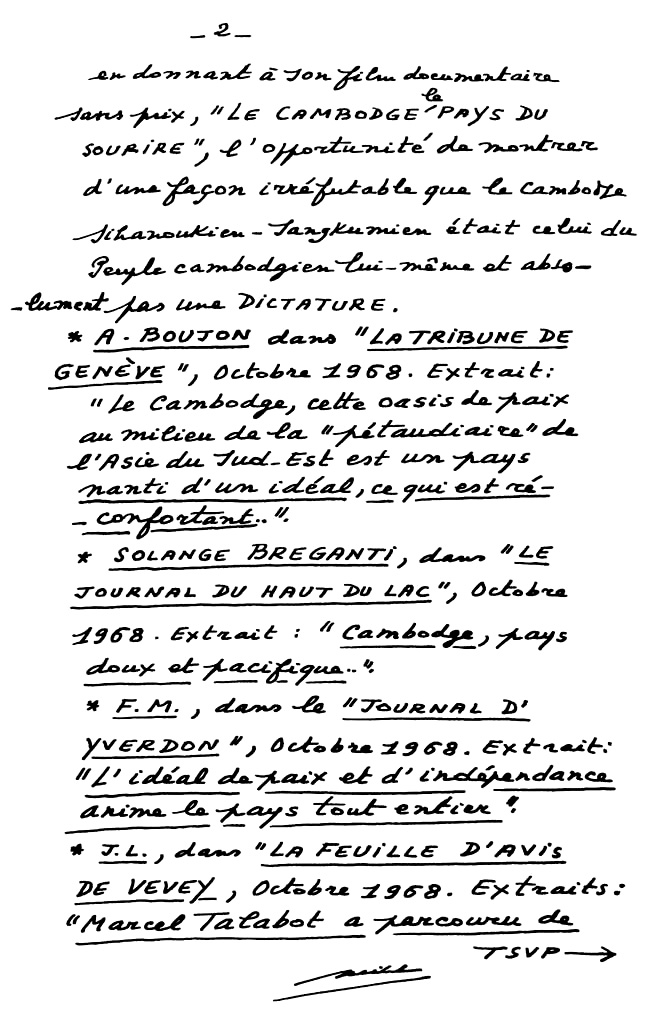 – 2 –
en donnant à son film documentaire
sans prix, "LE CAMBODGE le PAYS DU
SOURIRE", l'opportunité de montrer
d'une façon irréfutable que le Cambodge
Sihanoukien-Sangkumien était celui du
Peuple cambodgien lui-même et abso-
-lument pas une DICTATURE.
* A. BOUJON dans "LA TRIBUNE DE
GENÈVE", Octobre 1968. Extrait:
"Le Cambodge, cette oasis de paix
au milieu de la "pétaudiaire" de
l'Asie du Sud-Est est un pays
nanti d'un idéal, ce qui est ré-
-confortant..".
* SOLANGE BREGANTI, dans "LE
JOURNAL DU HAUT DU LAC", Octobre
1968. Extrait : "Cambodge, pays
doux et pacifique..".
* F.M., dans le "JOURNAL D'
YVERDON", Octobre 1968. Extrait:
"L'idéal de paix et d'indépendance
anime le pays tout entier".
* J.L., dans "LA FEUILLE D'AVIS
DE VEVEY, Octobre 1968. Extraits:
"Marcel Talabot a parcouru de
TSVP→